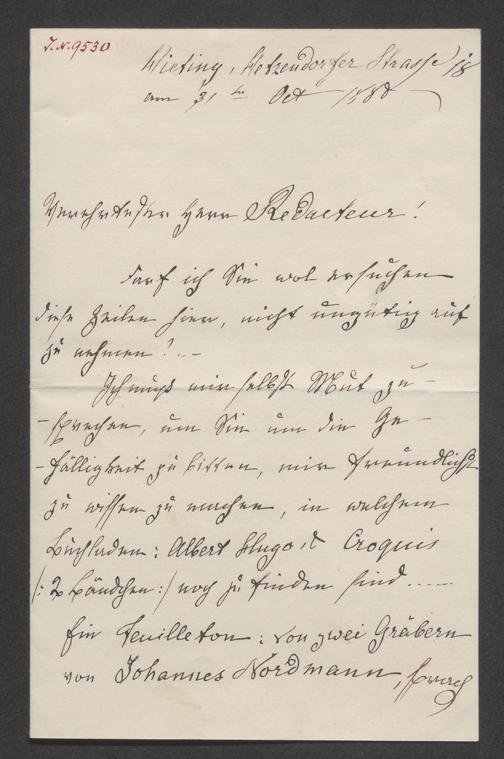 J.N.9530
Hietzing, Hetzendorfer Strasse 18
am 31 ten Oct 188
Verehrtester Herr Redacteur!
Darf ich Sie wol ersuchen
diese Zeilen hier, nicht ungütig auf
zu nehmen? . –
Ich muss mir selbst Mut zu –
– sprechen, um Sie um die Ge –
– fälligkeit zu bitten, mir freundlichst
zu wissen zu machen, in welchem
Buchladen: Albert Hugo's Croquis
/: 2 Bändchen :/ noch zu finden sind .....
Ein Feuilleton: Von zwei Gräbern
von Johannes Nordmann, sprach